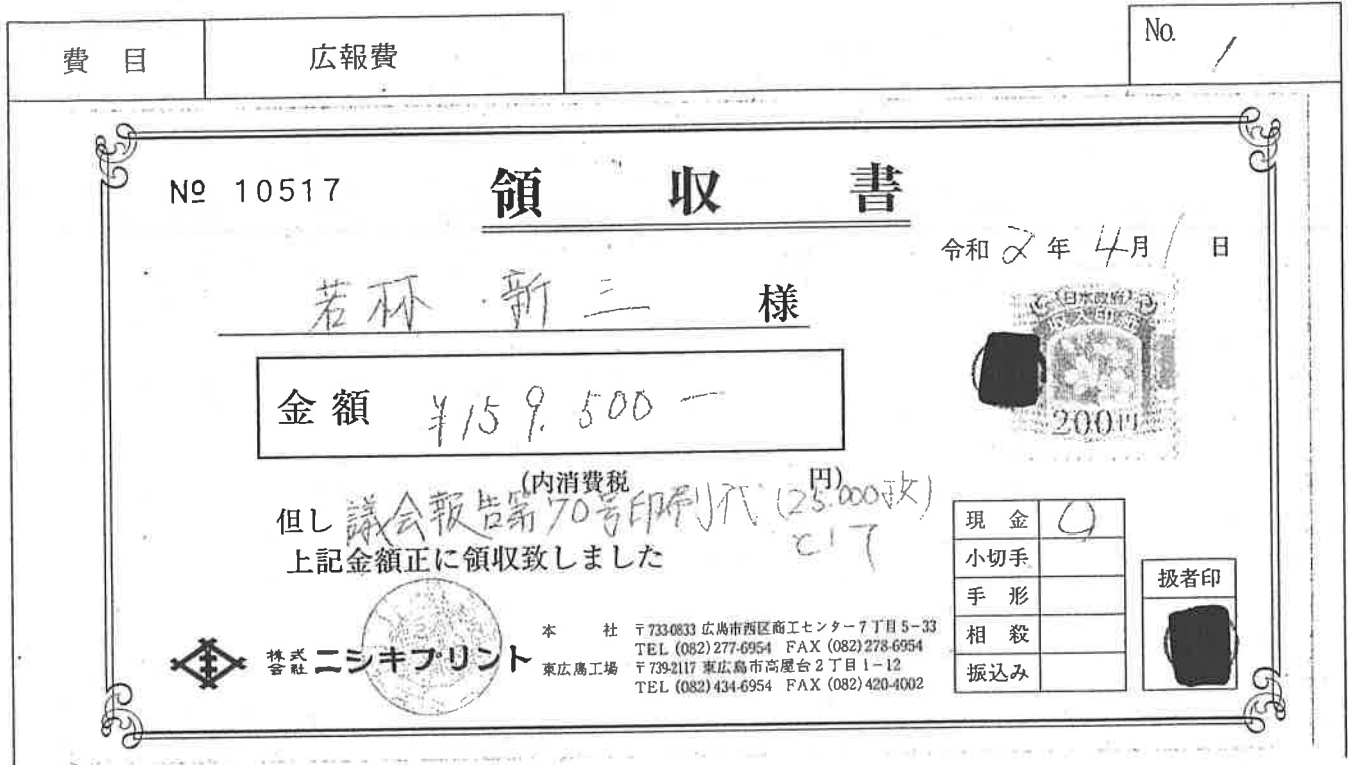 費目 広報費 No. 1
№ 10517 領収書
令和2年4月1日
若林 新三 様
日本政府
収入印紙
200円
金額 ¥159,500-
(内消費税 円)
但し 議会報告第70号印刷代(25,000枚)
として
上記金額正に領収致しました
現金 〇
小切手
手形
相殺
振込み
扱者印
株式会社 ニシキプリント
本社 〒733-0833 広島市西区商工センター7丁目5-33
TEL (082)277-6954 FAX (082)278-6954
東広島工場 〒739-2117 東広島市高屋台2丁目1-12
TEL (082)434-6954 FAX (082)420-4002